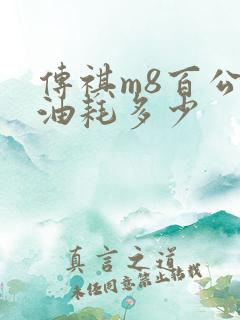 傳祺m8百公
油耗多少
真言之道
未经同意禁止转载